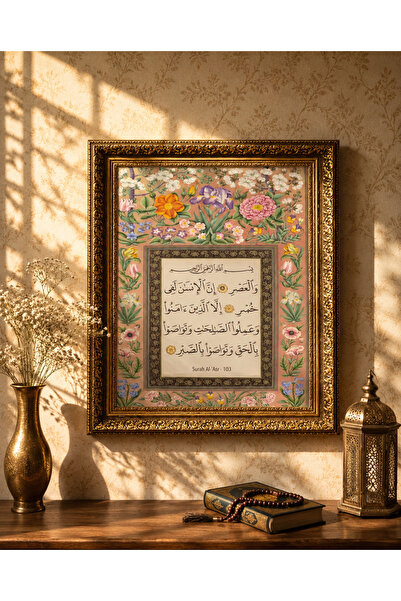 بِسْمِ اللَّهِ الرَّحْمَٰنِ الرَّحِيمِ
وَالْعَصْرِ ١ إِنَّ الْإِنسَٰنَ لَفِى
خُسْرٍ ٢ إِلَّا الَّذِينَ ءَامَنُوا۟
وَعَمِلُوا۟ الصَّٰلِحَٰتِ وَتَوَاصَوْا۟
بِالْحَقِّ وَتَوَاصَوْا۟ بِالصَّبْرِ ٣
Surah Al-'Asr - 103